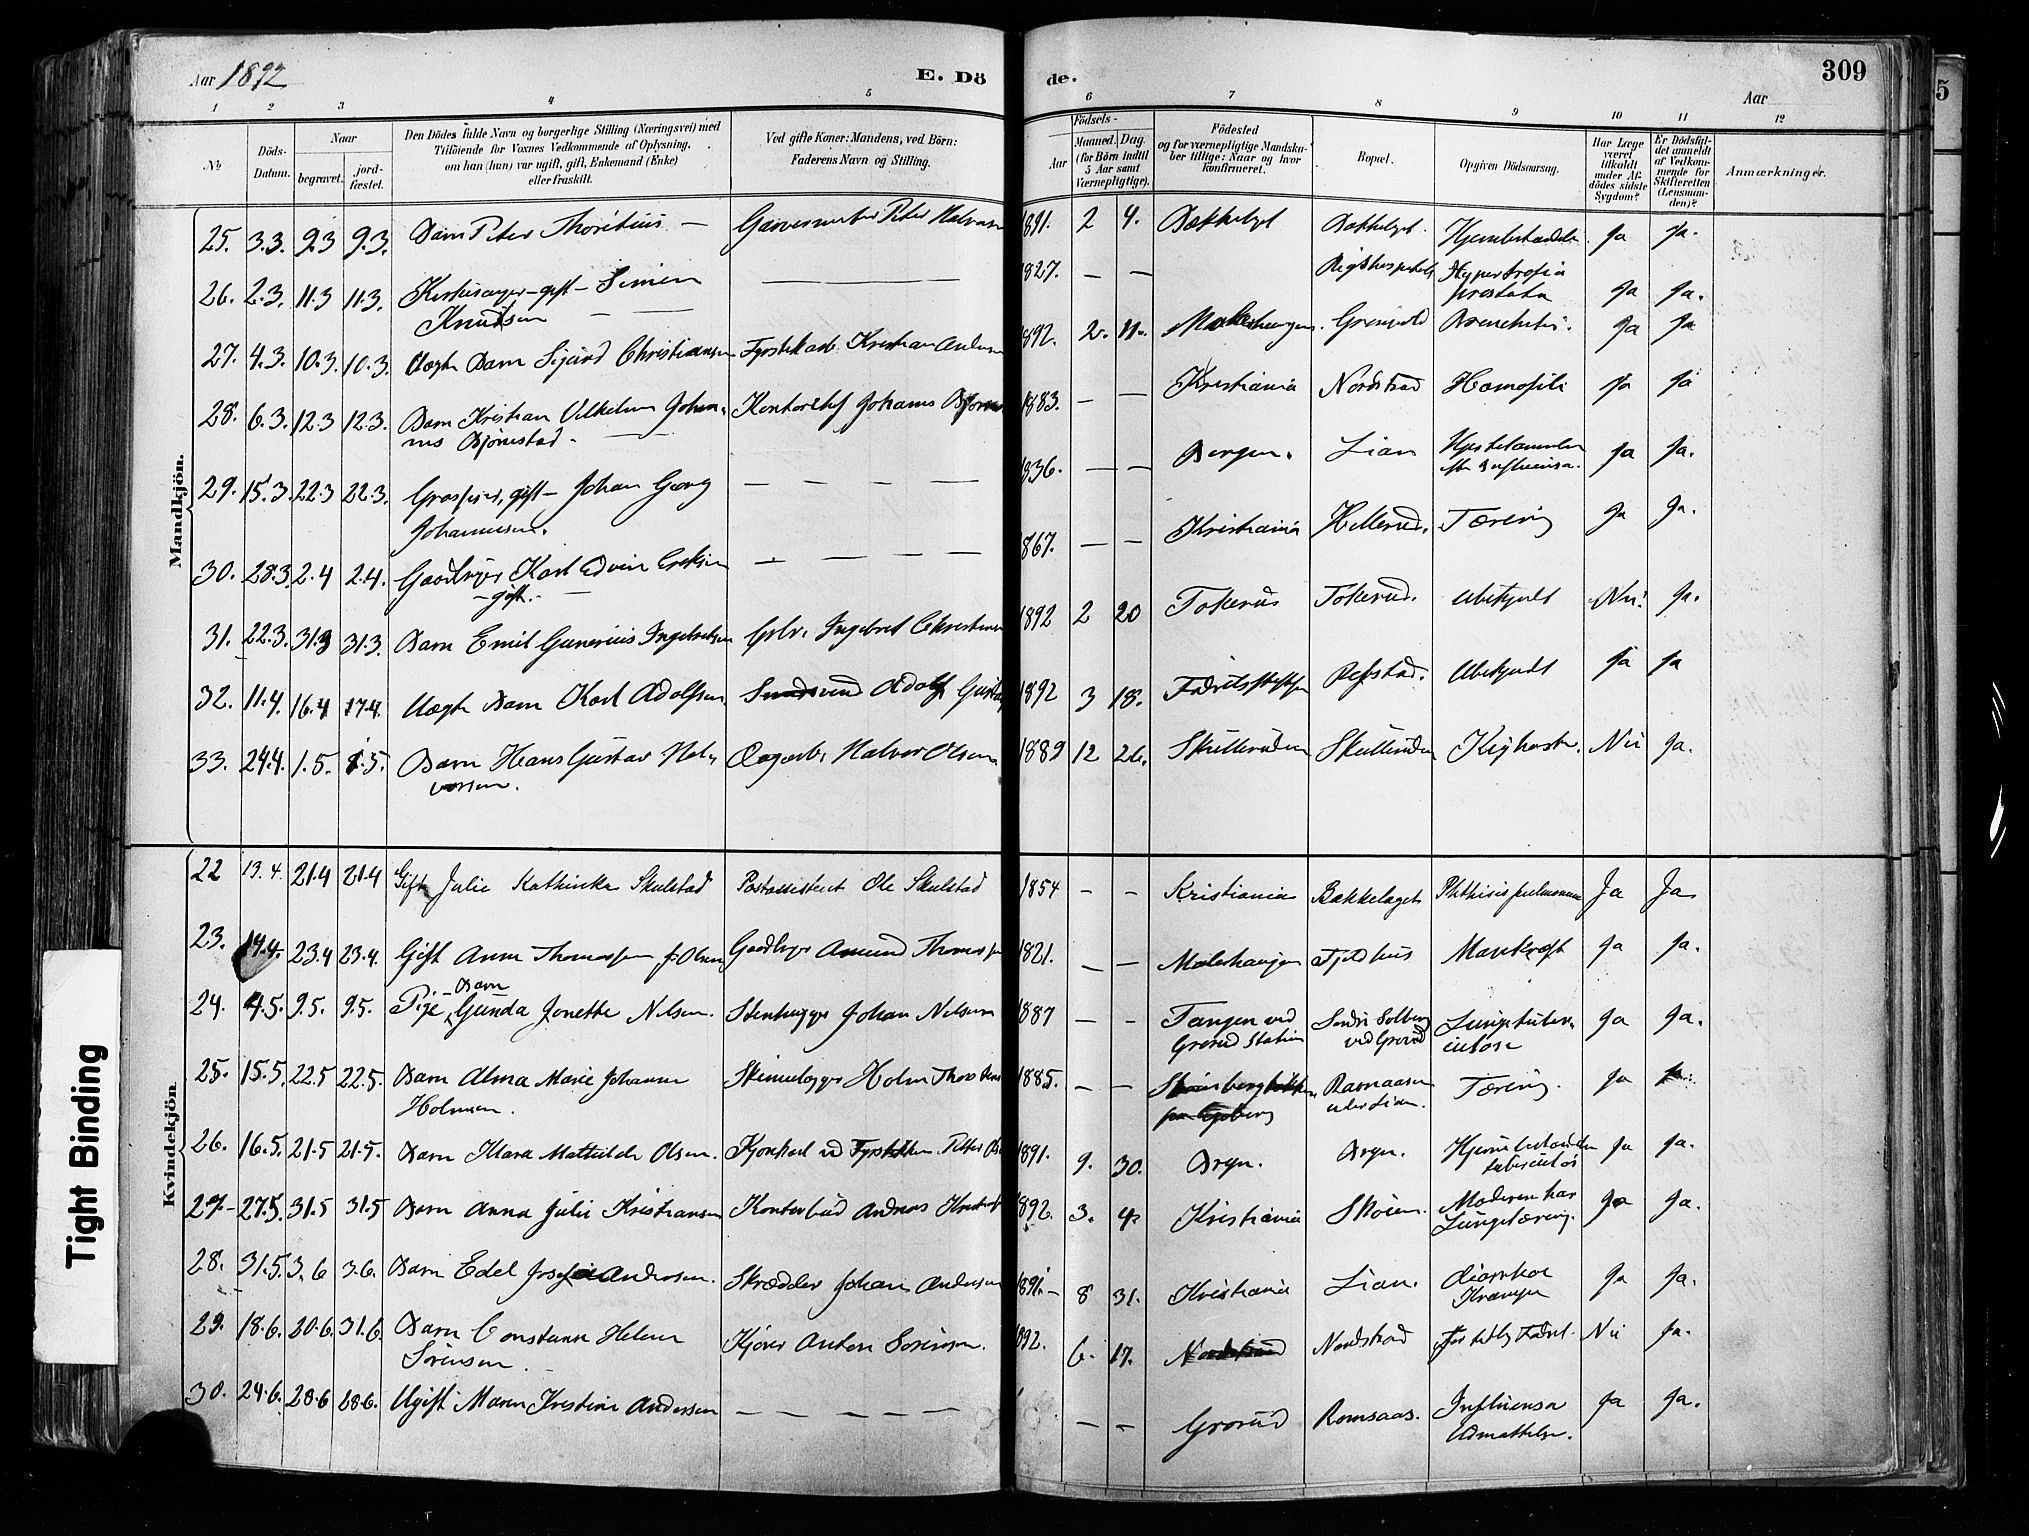 Aar 1892
E. Dö
de.
309
Aar
1 2 3 4 5 6 7 8 9 10 11 12
№
Döds-Datum.
Naar
begravet.
jord-fæstet.
Den Dödes fulde Navn og borgerlige Stilling (Næringsvei) med
Tilföiende for Voxnes Vedkommende af Oplysning,
om han (hun) var ugift, gift, Enkemand (Enke)
eller fraskilt.
Ved gifte Koner: Mandens, ved Börn:
Faderens Navn og Stilling.
Födsels-
Aar
Maaned. Dag.
(for Börn indtil
5 Aar samt
Værnepligtige).
Födested
og for værnepligtige Mandska-
ber tillige: Naar og hvor
konfirmeret.
Bopæl.
Opgiven Dödsaarsag.
Har Læge
været
tilkaldt
under Af-
dödes sidste
Sygdom?
Er Dödsfal-
det anmeldt
af Vedkom-
mende for
Skifteretten
(Lensman-
den)?
Anmærkninger.
Mandkjön.
25. 3.3. 9.3 9.3. Barn Peter Thoritius — Garvermester Peter 1891. 2 4. Bækkelaget Bækkelaget Ja Ja.
26. 2.3. 11.3 11.3. Kirkesanger - gift - Simen
Knudsen — — — — — 1827. — — Rigshospitalet Hypertrofia
prostata Ja Ja.
27. 4.3. 10.3. 10.3. Uægte Barn Sigurd Christiansen Fyrstikarb. Kristian 1892. 2. 11. Grønvold Ja Ja
28. 6.3. 12.3 12.3. Barn Kristian Vilhelm Johan-
nes Bjørnstad — Kontorchef Johannes 1883. — — Kristiania Nordstrand Hæmofili Ja Ja
29. 15.3. 22.3 22.3. gift - Johan Georg
Johannesen. — — — — 1836. — — Bergen. Lian Influensa. Ja Ja.
30. 28.3. 2.4 2.4. Gaardbruger Karl Edvin
- gift. — — — — — 1867. — — Kristiania Hellerud. Tæring Ja Ja.
31. 22.3. 31.3 31.3. Barn Emil Gunerius Ingebretsen Ingebret 1892 2 20 Tokerud Tokerud. Ubekjendt Nei. Ja.
32. 11.4. 16.4 17.4. Uægte Barn Karl Adolfsen. Adolf 1892 3 18. Fødselsstiftelsen Refstad. Ubekjendt Ja Ja
33. 24.4. 1.5. 1.5. Barn Hans Gustav Hal-
vorsen. Dagarb. Halvor Olsen 1889 12 26. Skullerud Skullerud Kighoste. Nei Ja.
Kvindekjön
22 13.4. 21.4 21.4 Gift Julie Kathinka Skulstad Postassistent Ole Skulstad 1854 — — Kristiania Bækkelaget Phthisis pulmonum Ja Ja
23. 14.4. 23.4 23.4. Gift Anne Thomassen f. Olsen Gaardbruger Amund Thomassen 1821. — — Fjeldhus Mavekræft Ja Ja.
24. 4.5. 9.5. 9.5. Pige - Barn Gunda Jonette Nilsen. Stenhugger Johan Nilsen 1887 — — Tangen ved
Grorud Station Søndre Solberg
ved Grorud Lungetuber-
culose Ja Ja.
25. 15.5. 22.5 22.5. Barn Alma Marie Johanne
Holmsen. 1885. — — Ravnaasen
under Lian. Tæring. Ja
26. 16.5. 21.5 21.5. Barn Klara Mathilde Olsen. 1891. 9. 30. Bryn. Bryn. Ja Ja.
27. 27.5. 31.5 31.5 Barn Anna Julie Kristiansen Kontorbud Andreas 1892. 3. 4. Kristiania Skøien. Moderen har
Lungetæring. Ja Ja.
28. 31.5. 3.6 3.6. Barn Edel Josefie Andersen. Skrædder Johan Andersen 1891. 8 31. Kristiania Lian. Diarrhoe
Kramper Ja Ja.
29. 18.6. 20.6 31.6. Barn Constance Helene
Sørensen. Kjører Anton Sørensen. 1892. 6. 17. Nordstrand Nordstrand For tidlig Fødsel. Nei Ja.
30. 24.6. 28.6 28.6. Ugift Maren Kristine Andersen — — — — — — — Grorud Romsaas. Influensa
Udmattelse. Ja Ja.
Tight Binding
5